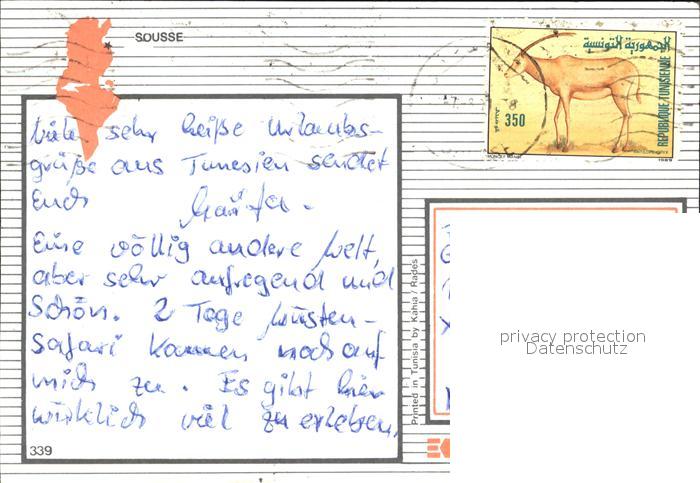 SOUSSE
الجمهورية التونسية
REPUBLIQUE TUNISIENNE
350
1989
Viele sehr heiße Urlaubs-
grüße aus Tunesien sendet
Euch
Eine völlig andere Welt,
aber sehr aufregend und
schön. 2 Tage Wüsten-
safari kommen noch auf
mich zu. Es gibt hier
wirklich viel zu erleben.
339
Printed in Tunisia by Kahia / Rades
privacy protection
Datenschutz